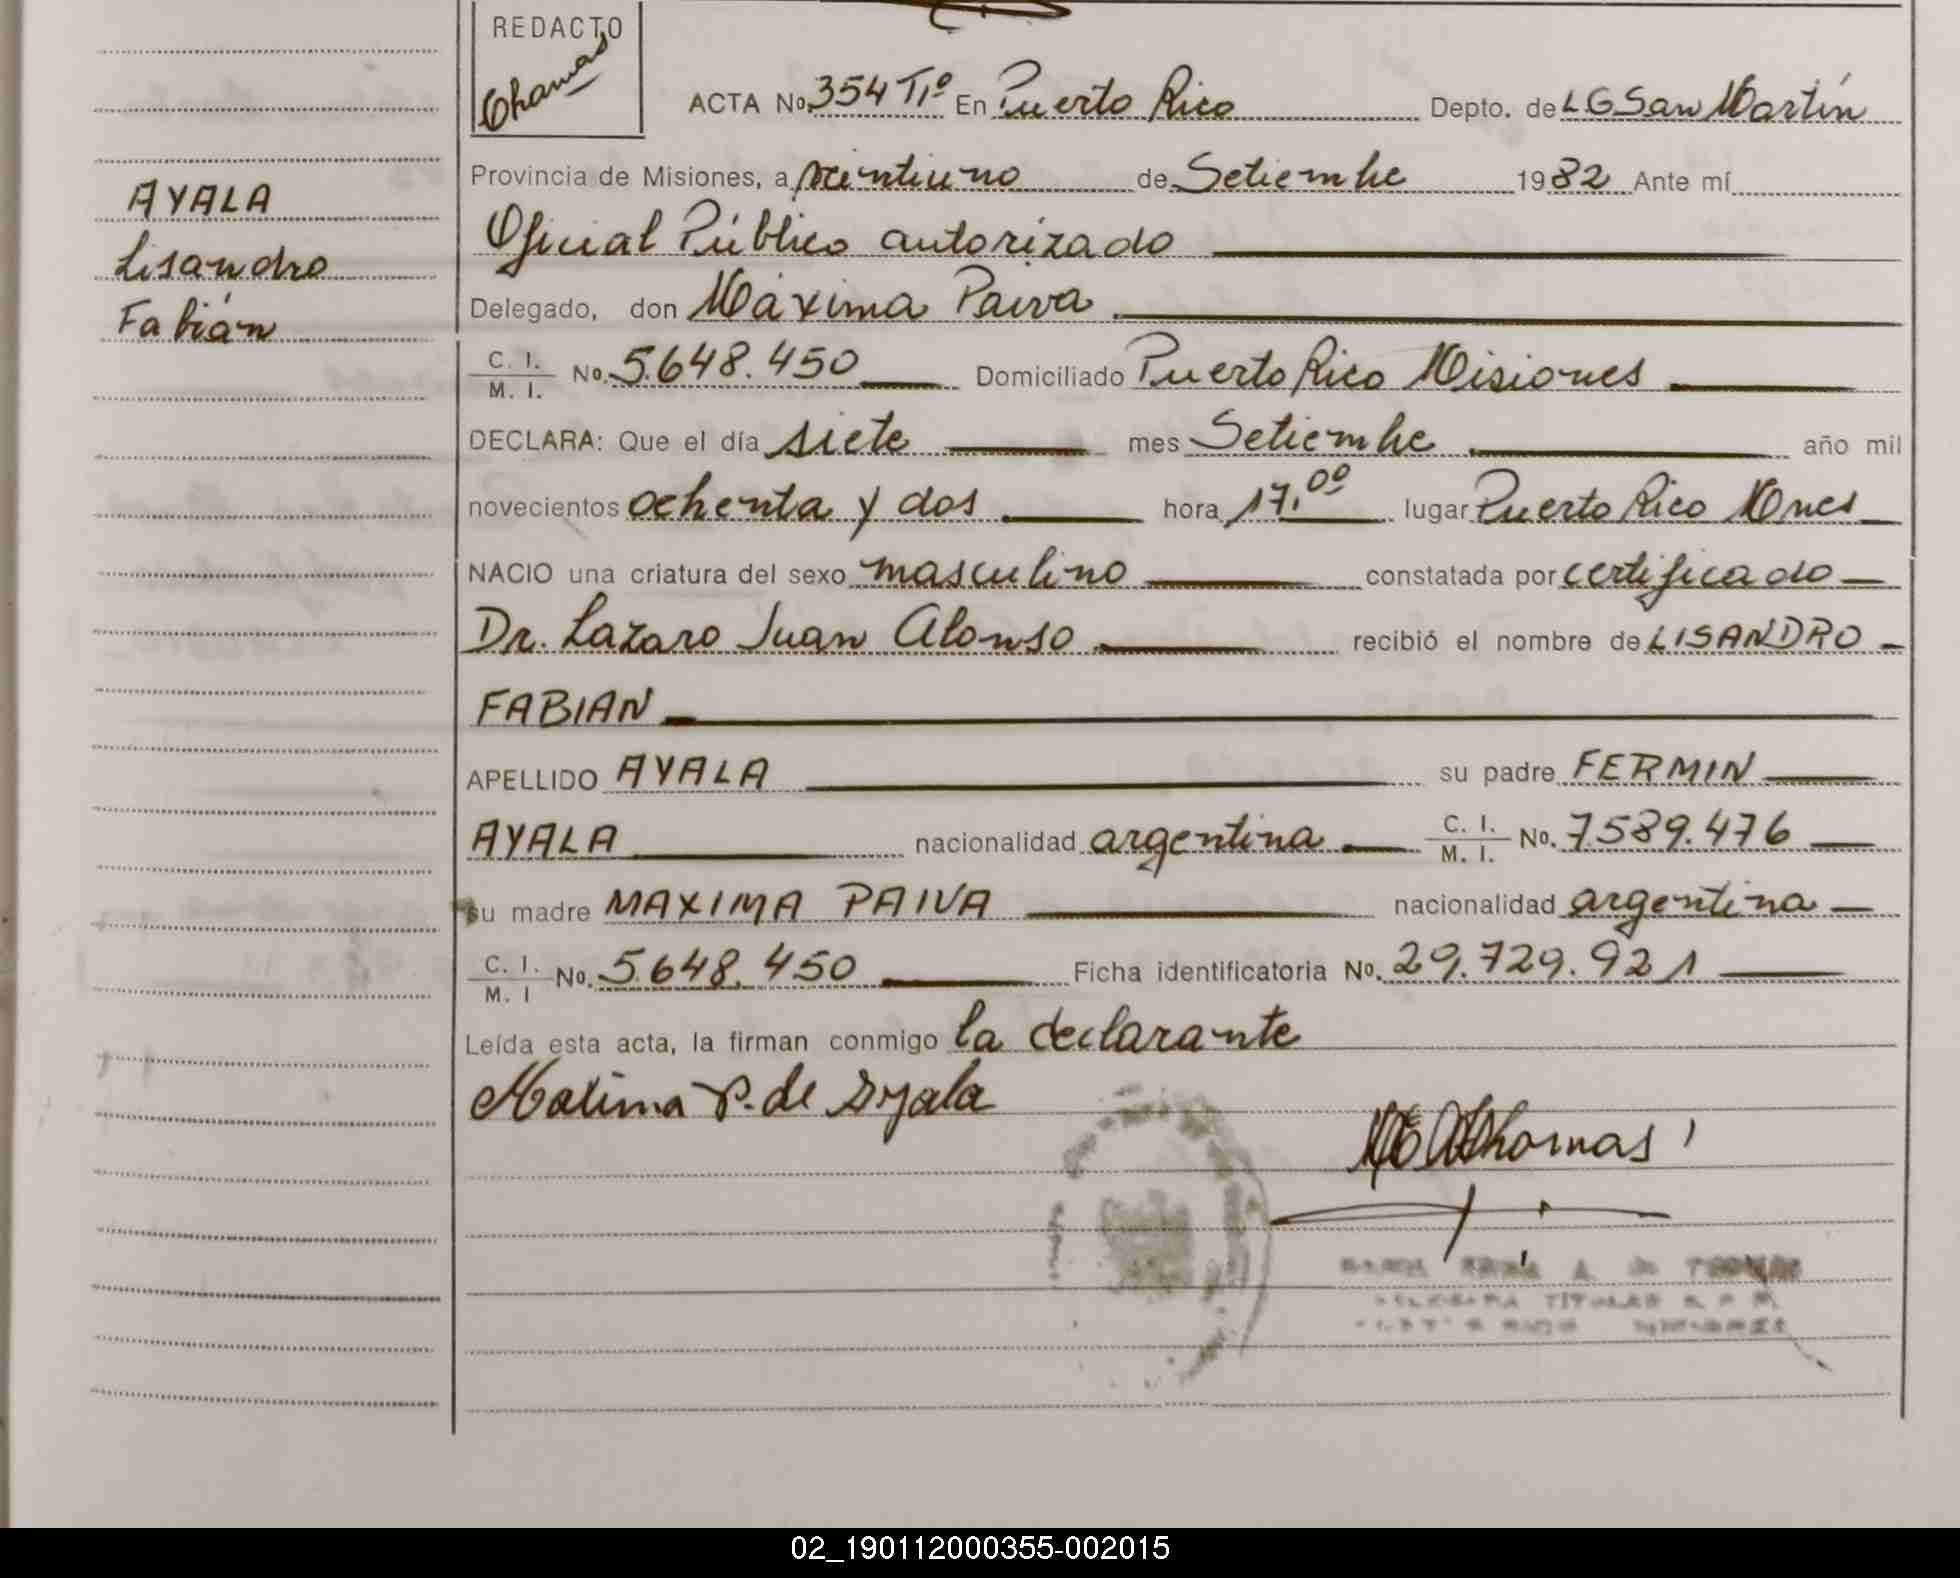 REDACTO
Thomas
ACTA No 354 Tº En Puerto Rico Depto. de LG San Martín
Provincia de Misiones, a veintiuno de Setiembre 1982 Ante mí
AYALA
Oficial Público autorizado
Lisandro
Delegado, don Máxima Paiva
Fabián
C. I. M. I. No. 5.648.450 Domiciliado Puerto Rico Misiones
DECLARA: Que el día siete mes Setiembre año mil
novecientos ochenta y dos hora 17,00 lugar Puerto Rico Mnes
NACIO una criatura del sexo masculino constatada por certificado
Dr. Lazaro Juan Alonso recibió el nombre de LISANDRO
FABIAN
APELLIDO AYALA su padre FERMIN
AYALA nacionalidad argentina C. I. M. I. No. 7.589.476
su madre MAXIMA PAIVA nacionalidad argentina
C. I. M. I No. 5.648.450 Ficha identificatoria No. 29.729.921
Leída esta acta, la firman conmigo la declarante
Maxima P. de Ayala
Thomas
02_190112000355-002015